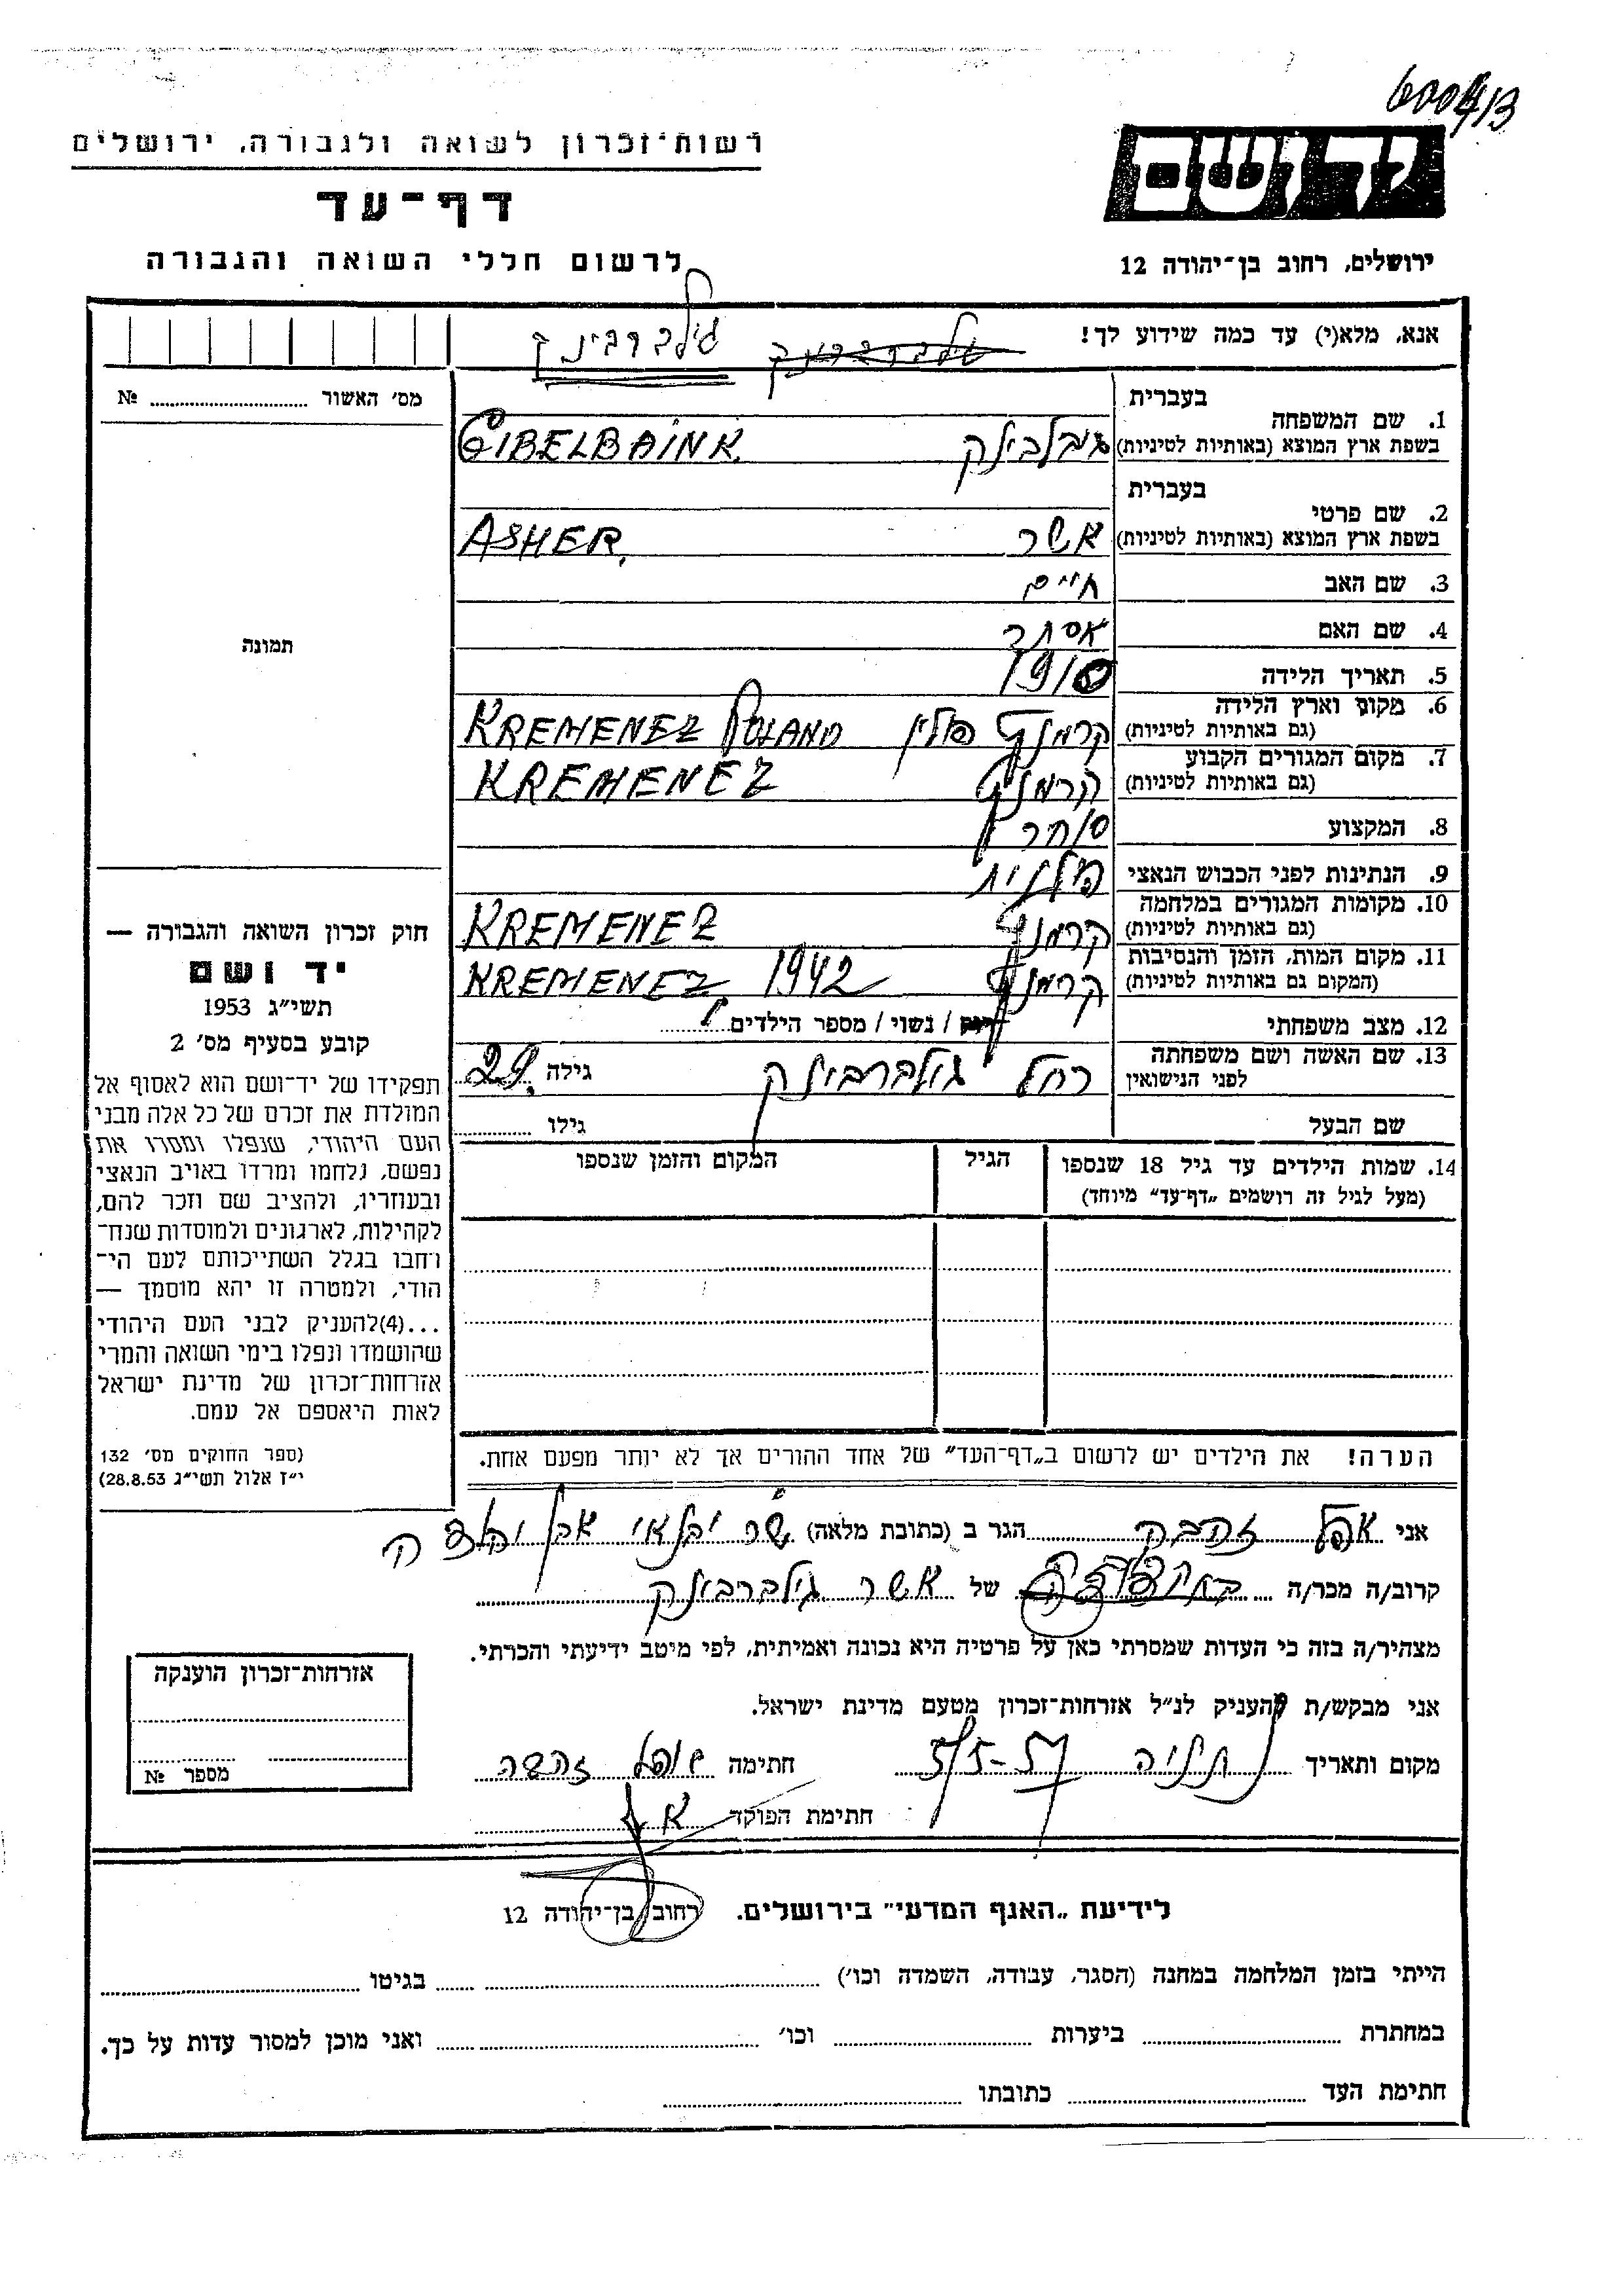 6004/3
רשות־זכרון לשואה ולגבורה, ירושלים
יד ושם
דף־עד
לרשום חללי השואה והגבורה
ירושלים, רחוב בן־יהודה 12
אנא, מלא(י) עד כמה שידוע לך!
גילברבינק
מס׳ האשור ........ №
1. שם המשפחה
בעברית
בשפת ארץ המוצא (באותיות לטיניות)
GIBELBAINK
2. שם פרטי
בעברית
בשפת ארץ המוצא (באותיות לטיניות)
אשר ASHER
3. שם האב חיים
4. שם האם אסתר
5. תאריך הלידה 1910
6. מקום וארץ הלידה
(גם באותיות לטיניות)
קרמניץ פולין KREMENEZ POLAND
7. מקום המגורים הקבוע
(גם באותיות לטיניות)
קרמניץ KREMENEZ
8. המקצוע סוחר
9. הנתינות לפני הכבוש הנאצי פולנית
10. מקומות המגורים במלחמה
(גם באותיות לטיניות)
קרמניץ KREMENEZ
11. מקום המות, הזמן והנסיבות
(המקום גם באותיות לטיניות)
קרמניץ KREMENEZ, 1942
12. מצב משפחתי רווק / נשוי / מספר הילדים
13. שם האשה ושם משפחתה
לפני הנישואין
רחל גילברבינק גילה 29
שם הבעל גילו
14. שמות הילדים עד גיל 18 שנספו
(מעל לגיל זה רושמים „דף־עד” מיוחד)
הגיל
המקום והזמן שנספו
הערה! את הילדים יש לרשום ב„דף־העד” של אחד ההורים אך לא יותר מפעם אחת.
תמונה
חוק זכרון השואה והגבורה —
יד ושם
תשי״ג 1953
קובע בסעיף מס׳ 2
תפקידו של יד־ושם הוא לאסוף אל
המולדת את זכרם של כל אלה מבני
העם היהודי, שנפלו ומסרו את
נפשם, נלחמו ומרדו באויב הנאצי
ובעוזריו, ולהציב שם וזכר להם,
לקהילות, לארגונים ולמוסדות שנח־
רחבו בגלל השתייכותם לעם הי־
הודי, ולמטרה זו יהא מוסמך —
...(4)להעניק לבני העם היהודי
שהושמדו ונפלו בימי השואה והמרי
אזרחות־זכרון של מדינת ישראל
לאות היאספם אל עמם.
(ספר החוקים מס׳ 132
י״ז אלול תשי״ג 28.8.53)
אני הגר ב (כתובת מלאה)
קרוב/ה מכר/ה של אשר גילברבינק
מצהיר/ה בזה כי העדות שמסרתי כאן על פרטיה היא נכונה ואמיתית, לפי מיטב ידיעתי והכרתי.
אני מבקש/ת להעניק לנ״ל אזרחות־זכרון מטעם מדינת ישראל.
מקום ותאריך נתניה חתימה
חתימת הפוקד
אזרחות־זכרון הוענקה
מספר №
לידיעת „האגף המדעי” בירושלים. רחוב בן־יהודה 12
הייתי בזמן המלחמה במחנה (הסגר, עבודה, השמדה וכו׳) בגיטו
במחתרת ביערות וכו׳ ואני מוכן למסור עדות על כך.
חתימת העד כתובתו